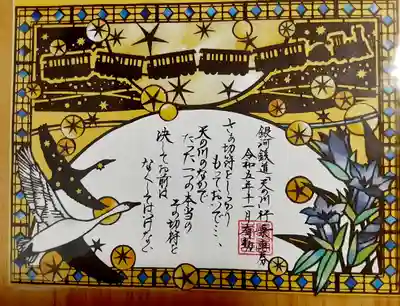 銀河鉄道 天の川行
令和五年十一月
乗車券
有効
さあ切符をしっかり
もっておいで…、
天の川のなかで
たった一つの本当の
その切符を
決してお前は
なくしてはいけない